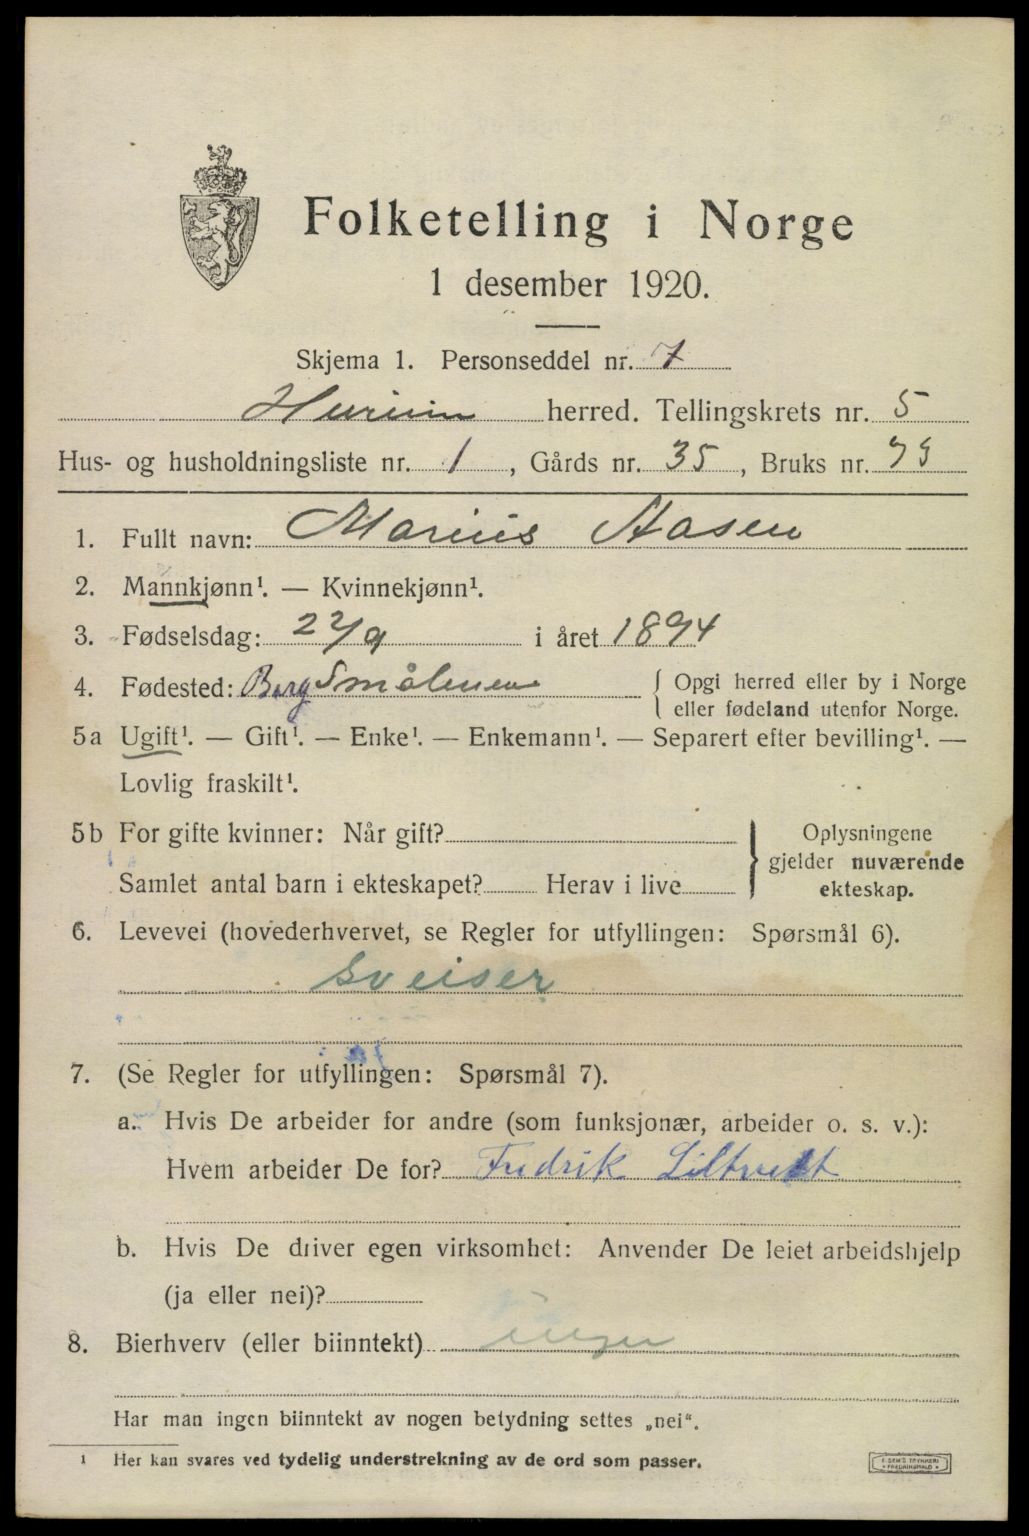 Folketelling i Norge
1 desember 1920.
Skjema 1. Personseddel nr. 7
Hurum herred. Tellingskrets nr. 5
Hus- og husholdningsliste nr. 1, Gårds nr. 35, Bruks nr.
1. Fullt navn: Marius Aasen
2. Mannkjønn¹. — Kvinnekjønn¹.
3. Fødselsdag: 27/9 i året 1894
4. Fødested: Berg Smålenene { Opgi herred eller by i Norge
eller fødeland utenfor Norge.
5a Ugift¹. — Gift¹. — Enke¹. — Enkemann¹. — Separert efter bevilling¹. —
Lovlig fraskilt¹.
5b For gifte kvinner: Når gift? } Oplysningene
gjelder nuværende
Samlet antal barn i ekteskapet? Herav i live
ekteskap.
6. Levevei (hovederhvervet, se Regler for utfyllingen: Spørsmål 6).
Sveiser
7. (Se Regler for utfyllingen: Spørsmål 7).
a. Hvis De arbeider for andre (som funksjonær, arbeider o. s. v.):
Hvem arbeider De for? Fredrik Siltvedt
b. Hvis De driver egen virksomhet: Anvender De leiet arbeidshjelp
(ja eller nei)?
8. Bierhverv (eller biinntekt) ingen
Har man ingen biinntekt av nogen betydning settes „nei“.
¹ Her kan svares ved tydelig understrekning av de ord som passer.
E. SEM'S TRYKKERI
FREDRIKSHALD